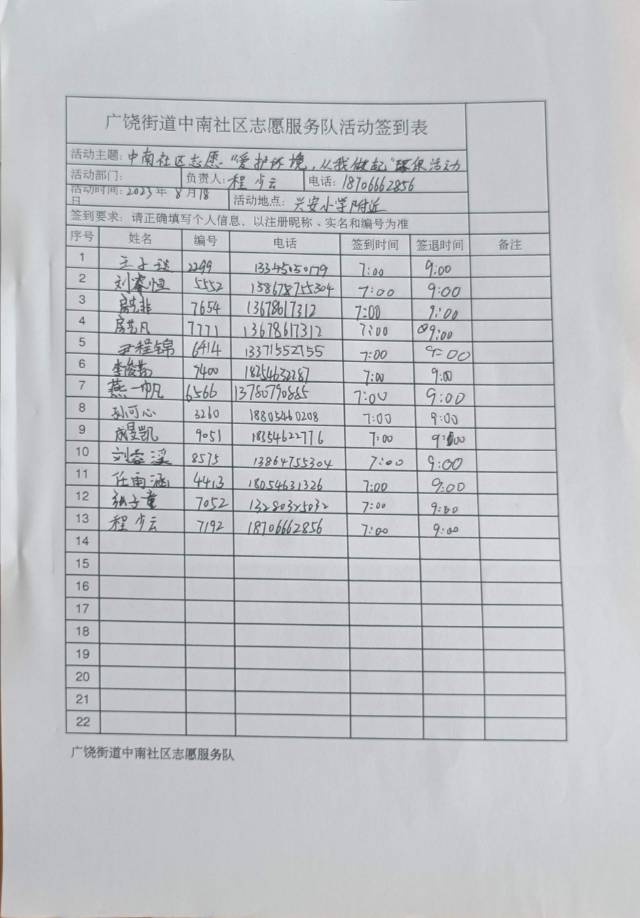 广饶街道中南社区志愿服务队活动签到表
活动主题：中南社区志愿“爱护环境，从我做起”环保活动
活动部门： 负责人：程少云 电话：18706662856
活动时间：2023年8月18日 活动地点：兴安小学附近
签到要求：请正确填写个人信息，以注册昵称、实名和编号为准
序号 姓名 编号 电话 签到时间 签退时间 备注
1 王子 2299 13345050179 7:00 9:00
2 刘睿恒 5552 13864755304 7:00 9:00
3 7654 13678617312 7:00 9:00
4 7771 13678617312 7:00 9:00
5 尹程锦 6414 13371552755 7:00 9:00
6 7400 18254632287 7:00 9:00
7 燕一帆 6566 13780790885 7:00 9:00
8 孙可心 3260 18805460208 7:00 9:00
9 成昱凯 9051 18354622776 7:00 9:00
10 刘睿溪 8575 13864755304 7:00 9:00
11 任雨涵 4413 18054631326 7:00 9:00
12 张子童 7052 13280325032 7:00 9:00
13 程少云 7192 18706662856 7:00 9:00
14
15
16
17
18
19
20
21
22
广饶街道中南社区志愿服务队